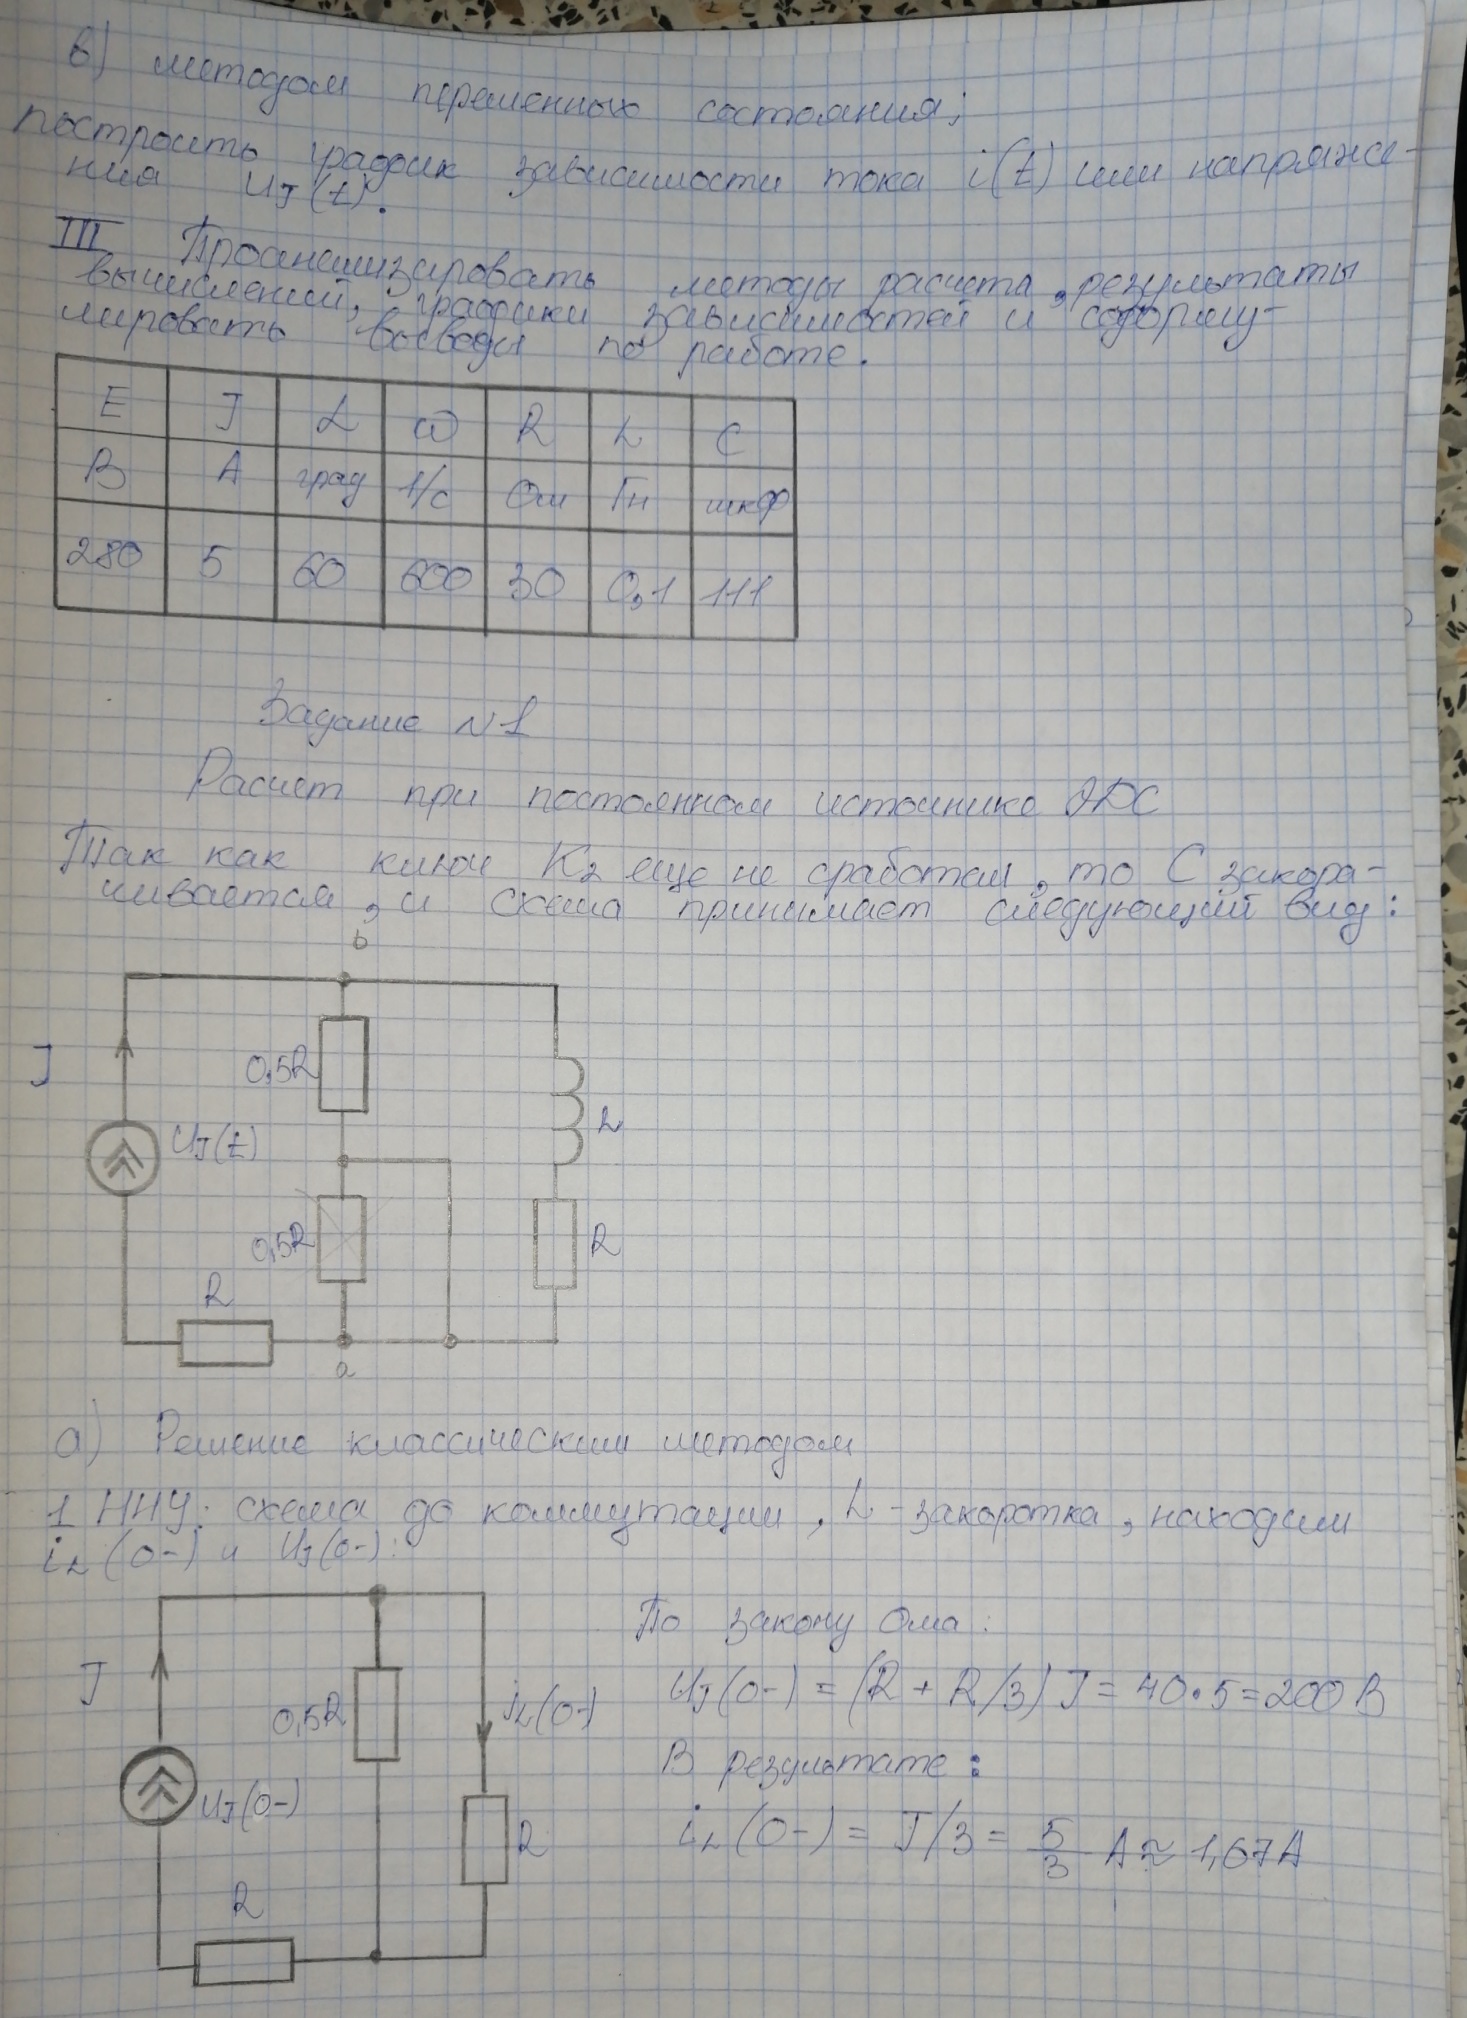 в) методом переменных состояния;
построить график зависимости тока i(t) или напряже-
ния UJ(t).
III Проанализировать методы расчета, результаты
вычислений, графики зависимостей и сформу-
лировать выводы по работе.
E J L ω R L C
В А град 1/с Ом Гн мкФ
280 5 60 600 30 0,1 111
Задание №1
Расчет при постоянном источнике ЭДС
Так как ключ K2 еще не сработал, то C закора-
чивается, и схема принимает следующий вид:
b
J
0,5R
UJ(t)
L
0,5R
R
R
a
а) Решение классическим методом
1 ННУ: схема до коммутации, L - закоротка, находим
iL(0-) и UJ(0-):
По закону Ома:
J
0,5R
iL(0-)
UJ(0-) = (R + R/3) J = 40·5 = 200 В
В результате:
UJ(0-)
R
iL(0-) = J/3 = 5/3 А ≈ 1,67 А
R